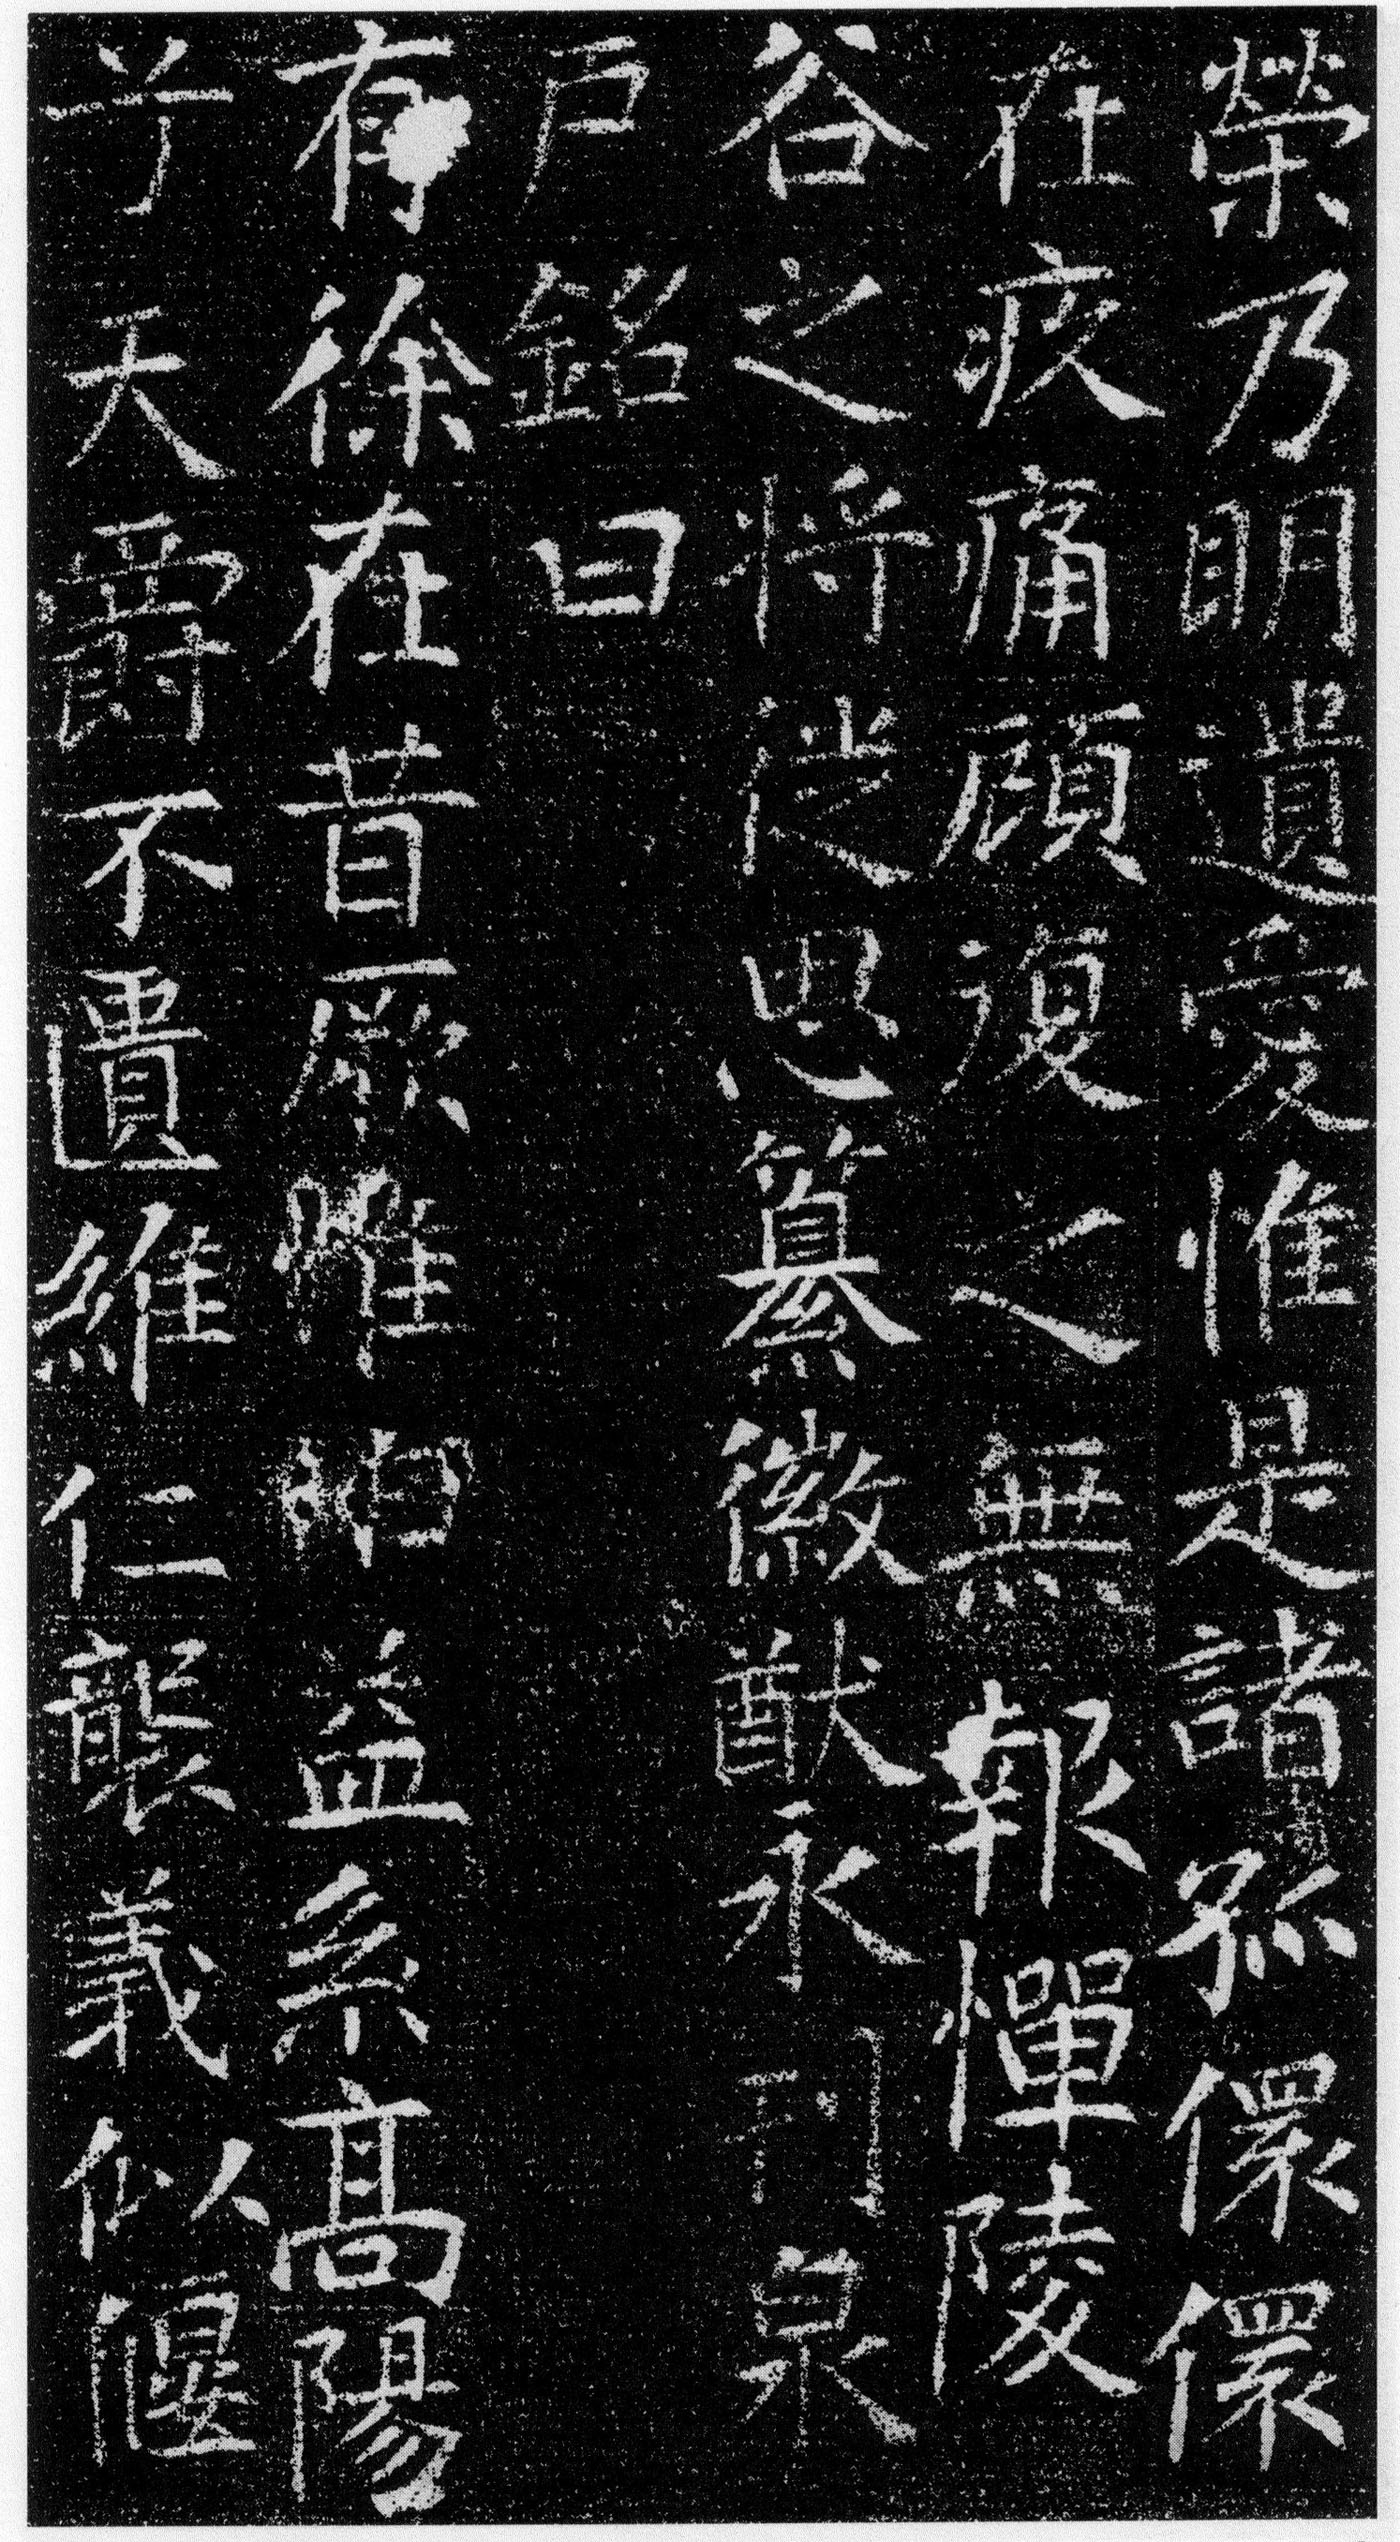 榮乃明遺愛惟是諸孫儇儇
在疚痛顧復之無報憚陵
谷之將從思纂徽猷永刊泉
戶銘曰
有徐在昔厥惟柏益系高陽
兮天爵不匱維仁襲義似偃